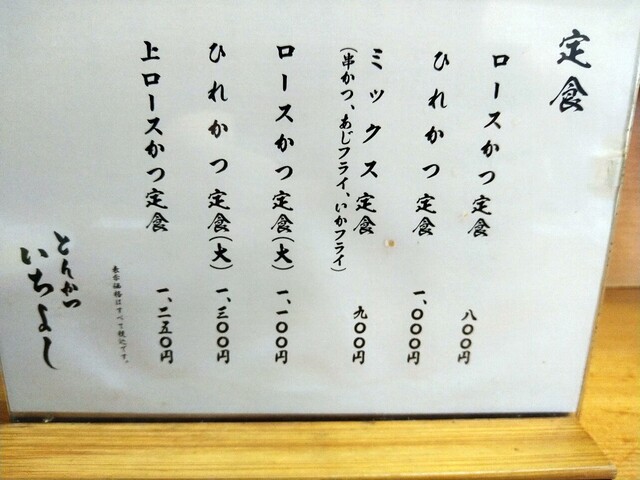 定食
ロースかつ定食 八〇〇円
ひれかつ定食 一、〇〇〇円
ミックス定食 九〇〇円
(串かつ、あじフライ、いかフライ)
ロースかつ定食(大) 一、一〇〇円
ひれかつ定食(大) 一、三〇〇円
上ロースかつ定食 一、二五〇円
表示価格はすべて税込です。
とんかつ
いちよし